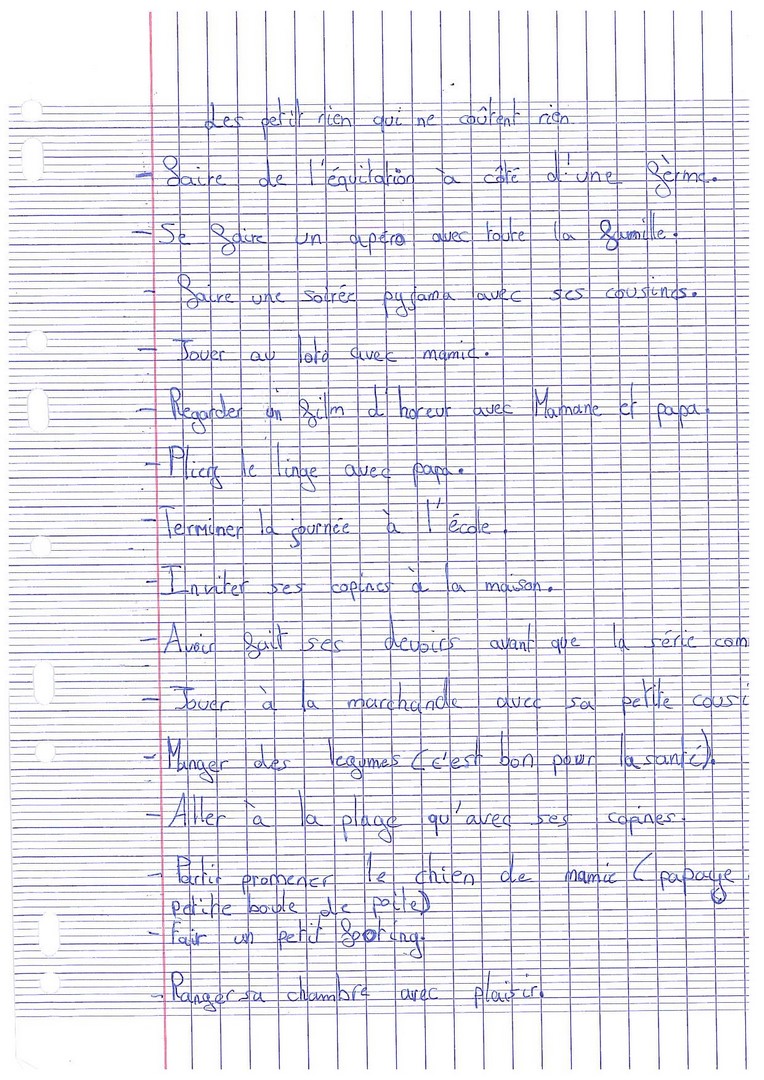 Les petit rien qui ne coûtent rien
- Faire de l'équitation à côté d'une fèrme.
- Se faire un apéro avec toute la famille.
- Faire une soirée pyjama avec ses cousines.
- Jouer au loto avec mamie.
- Regarder un film d'horeur avec Mamane et papa.
- Plier le linge avec papa.
- Terminer la journée à l'école.
- Inviter ses copines à la maison.
- Avoir fait ses devoirs avant que la série com
- Jouer à la marchande avec sa petite cousi
- Manger des legumes (c'est bon pour la santé).
- Aller à la plage qu'avec ses copines.
- Partir promener le chien de mamie (papaye
petite boule de poile)
- Fair un petit footing.
- Ranger sa chambre avec plaisir.